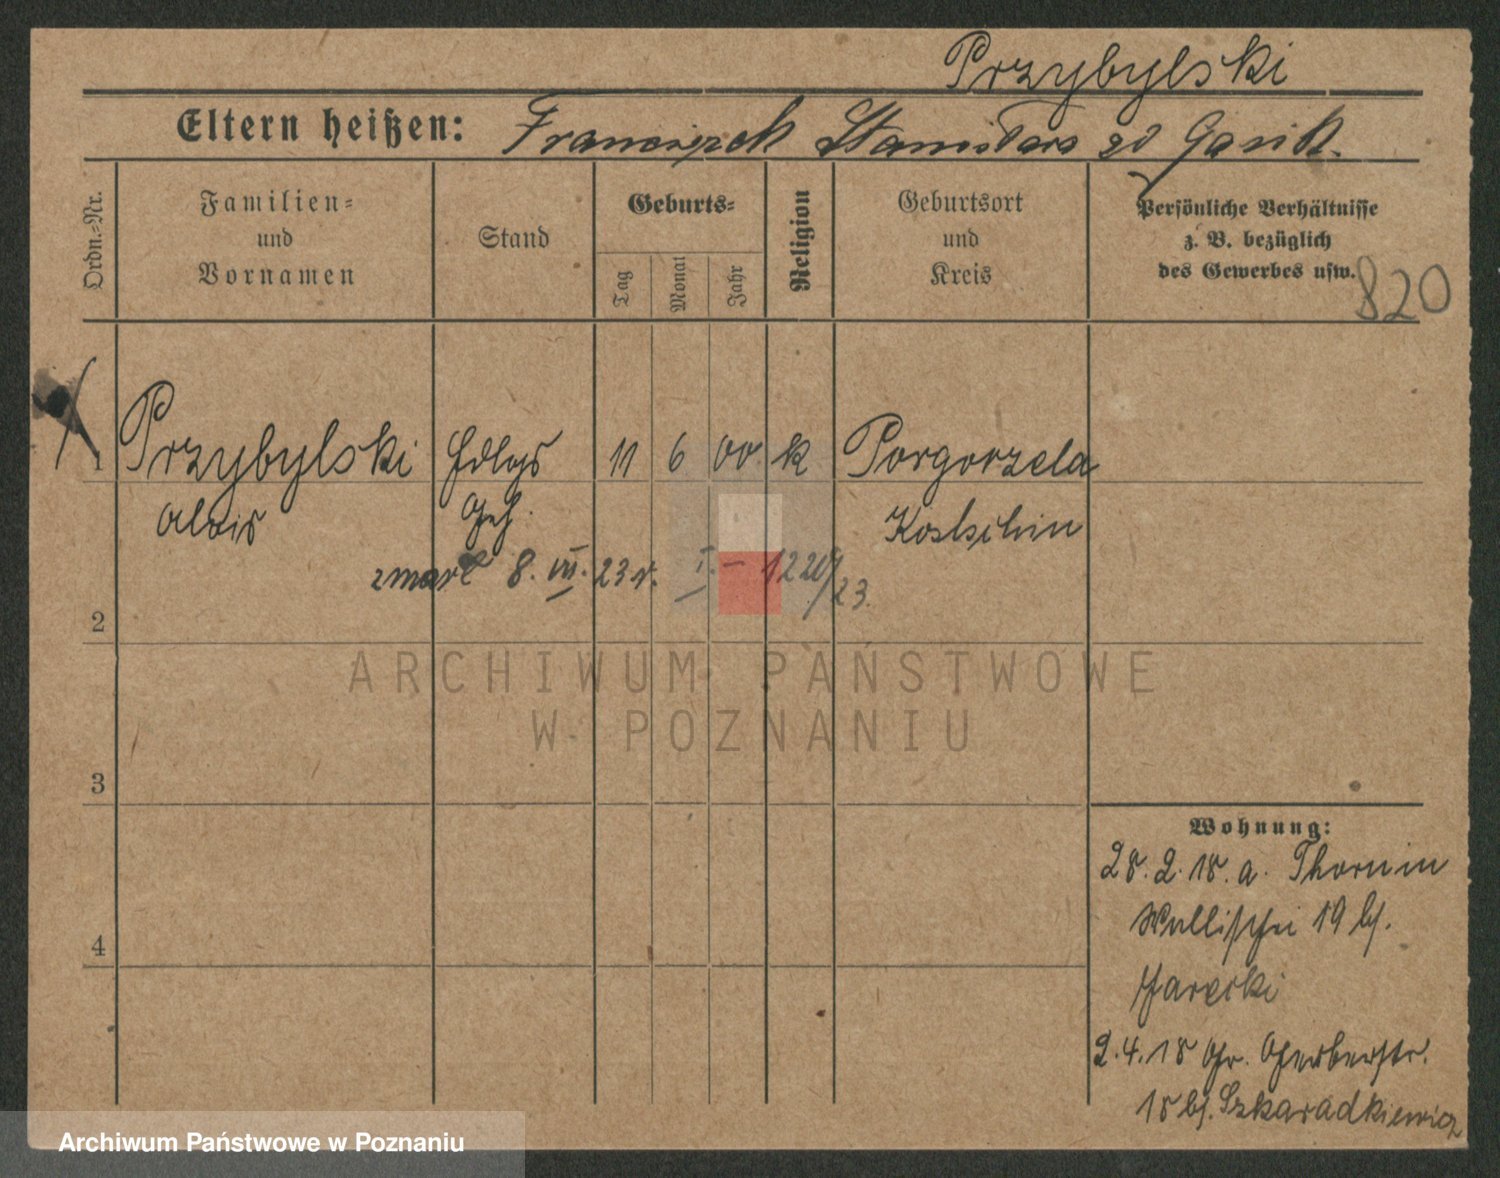 Przybylski
Eltern heißen: Franciszek Stanisława zd Gasik
Ordn.-Nr.
Familien-
und
Vornamen
Stand
Geburts-
Tag
Monat
Jahr
Religion
Geburtsort
und
Kreis
Persönliche Verhältnisse
z. B. bezüglich
des Gewerbes usw.
820
1 Przybylski Hdlgs 11 6 00 k Porgorzela
Alois Geh. Kostschin
zmarł 8. VII. 23 r. I. – 1220/23.
2
3
4
ARCHIWUM PAŃSTWOWE
W POZNANIU
Wohnung:
28. 2. 18. a. Thorn in
Wallischei 19 bj.
Jarecki
2. 4. 18 Gr. Gerberstr.
18 bj. Szkaradkiewicz
Archiwum Państwowe w Poznaniu